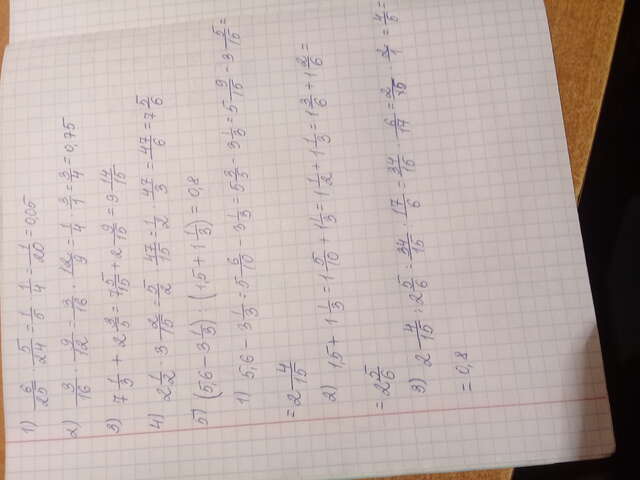 1) 6/25 · 5/24 = 1/5 · 1/4 = 1/20 = 0,05
2) 3/16 : 9/12 = 3/16 · 12/9 = 1/4 · 3/1 = 3/4 = 0,75
3) 7 1/3 + 2 3/5 = 7 5/15 + 2 9/15 = 9 14/15
4) 2 1/2 · 3 2/15 = 5/2 · 47/15 = 1/2 · 47/3 = 47/6 = 7 5/6
5) (5,6 - 3 1/3) : (1,5 + 1 1/3) = 0,8
1) 5,6 - 3 1/3 = 5 6/10 - 3 1/3 = 5 3/5 - 3 1/3 = 5 9/15 - 3 5/15 =
= 2 4/15
2) 1,5 + 1 1/3 = 1 5/10 + 1 1/3 = 1 1/2 + 1 1/3 = 1 3/6 + 1 2/6 =
= 2 5/6
3) 2 4/15 : 2 5/6 = 34/15 : 17/6 = 34/15 · 6/17 = 2/5 · 2/1 = 4/5 =
= 0,8